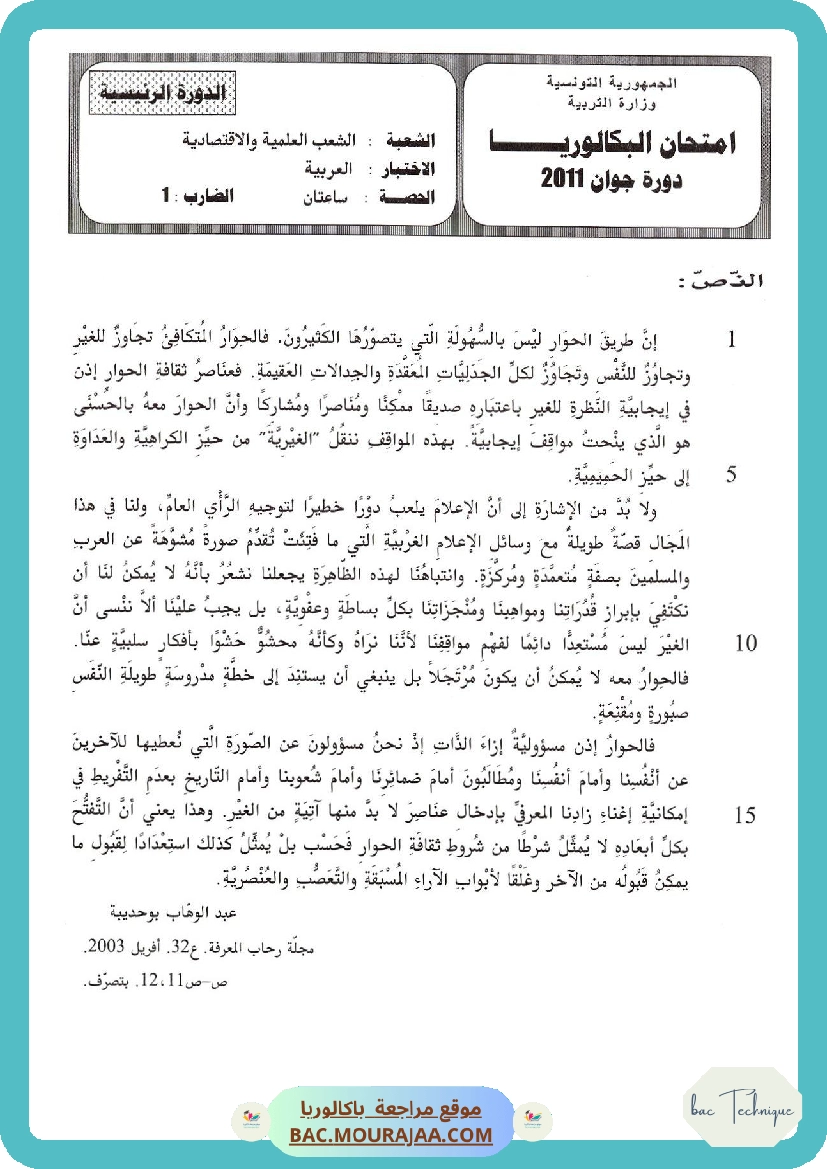 الجمهورية التونسية
وزارة التربية
امتحان البكالوريا
دورة جوان 2011
الدورة الرئيسية
الشعبة : الشعب العلمية والاقتصادية
الاختبار : العربية
الحصة : ساعتان الضارب : 1
النّصّ :
1 إنَّ طريقَ الحوَارِ ليْسَ بالسُّهُولَةِ الّتي يتصوّرُهَا الكَثيرُونَ، فالحِوَارُ المُتكَافِئُ تجاوزٌ للغيْرِ
وتجاوُزٌ للنَّفْسِ وتَجَاوُزٌ لكلِّ الجَدَليَّاتِ المُعَقَّدَةِ والجِدالات العَقيمَةِ. فعنَاصرُ ثقافَةِ الحوارِ إذن
في إيجابيَّةِ النَّظرةِ للغيرِ باعتبَارِه صديقًا ممْكِنًا ومُنَاصرًا ومُشاركًا وأنَّ الحوارَ معهُ بالحُسْنَى
هو الَّذي ينْحتُ مواقفَ إيجابيَّةً. بهذه المواقِفِ ننقُلُ "الغيْريَّةَ" من حيِّزِ الكراهيَّةِ والعَدَاوَةِ
5 إلى حيِّزِ الحَمِيمِيَّةِ.
ولا بُدَّ من الإشارَةِ إلى أنَّ الإعلامَ يلعبُ دوْرًا خطيرًا لتوجيهِ الرَّأْيِ العامِّ، ولنا في هذا
المجَال قصّةٌ طويلةٌ معَ وسائلِ الإعلامِ الغرْبيَّةِ الَّتي ما فَتِئَتْ تُقدِّمُ صورةً مُشوَّهَةً عن العربِ
والمسلمينَ بصفَةٍ مُتعمَّدَةٍ ومُركَّزَةٍ. وانتباهُنَا لهذه الظّاهِرَةِ يجعلنا نشعُرُ بأنَّهُ لا يُمكنُ لنَا أن
نكْتَفِيَ بإبرازِ قُدُرَاتِنا ومواهبنَا ومُنْجَزَاتِنَا بكلِّ بساطَةٍ وعفْويَّةٍ، بل يجبُ عليْنَا ألاَّ ننْسى أنَّ
10 الغيْرَ ليسَ مُسْتَعِدًّا دائمًا لفهْمِ مواقفِنَا لأنَّنَا نرَاهُ وكأنَّهُ محشُوٌّ حَشْوًا بأفكارٍ سلبيَّةٍ عنّا.
فالحِوارُ معه لا يُمكنُ أن يكونَ مُرْتَجَلاً بل ينبغي أن يستنِدَ إلى خطَّةٍ مدْروسَةٍ طويلَةِ النّفَسِ
صبُورةٍ ومُقْنِعَةٍ.
فالحوارُ إذن مسؤوليَّةٌ إزاءَ الذَّاتِ إذْ نحنُ مسؤولونَ عن الصّورَةِ الَّتي نُعطيها للآخرينَ
عن أنْفُسِنا وأمامَ أنفسُِنَا ومُطَالَبُونَ أمامَ ضمائِرِنَا وأمامَ شُعوبنا وأمام التّاريخِ بعدَمِ التَّفْريطِ في
15 إمكانيَّةِ إغناءِ زادِنا المعرفيِّ بإدخال عنَاصرَ لا بدَّ منها آتيَةٍ من الغيْرِ. وهذا يعني أنَّ التَّفتُّحَ
بكلِّ أبعَادِهِ لا يُمثِّلُ شرْطًا من شُروطِ ثقافَةِ الحوارِ فَحَسْب بلْ يُمثّلُ كذلك استِعْدَادًا لِقبُولِ ما
يمكِنُ قَبُولُه من الآخر وغَلْقًا لأبْوابِ الآراءِ المُسْبَقَةِ والتَّعَصُّبِ والعُنْصُريَّةِ.
عبد الوهّاب بوحديبة
مجلّة رحاب المعرفة. ع32. أفريل 2003.
ص-ص11، 12. بتصرّف.
موقع مراجعة باكالوريا
BAC.MOURAJAA.COM
bac Technique